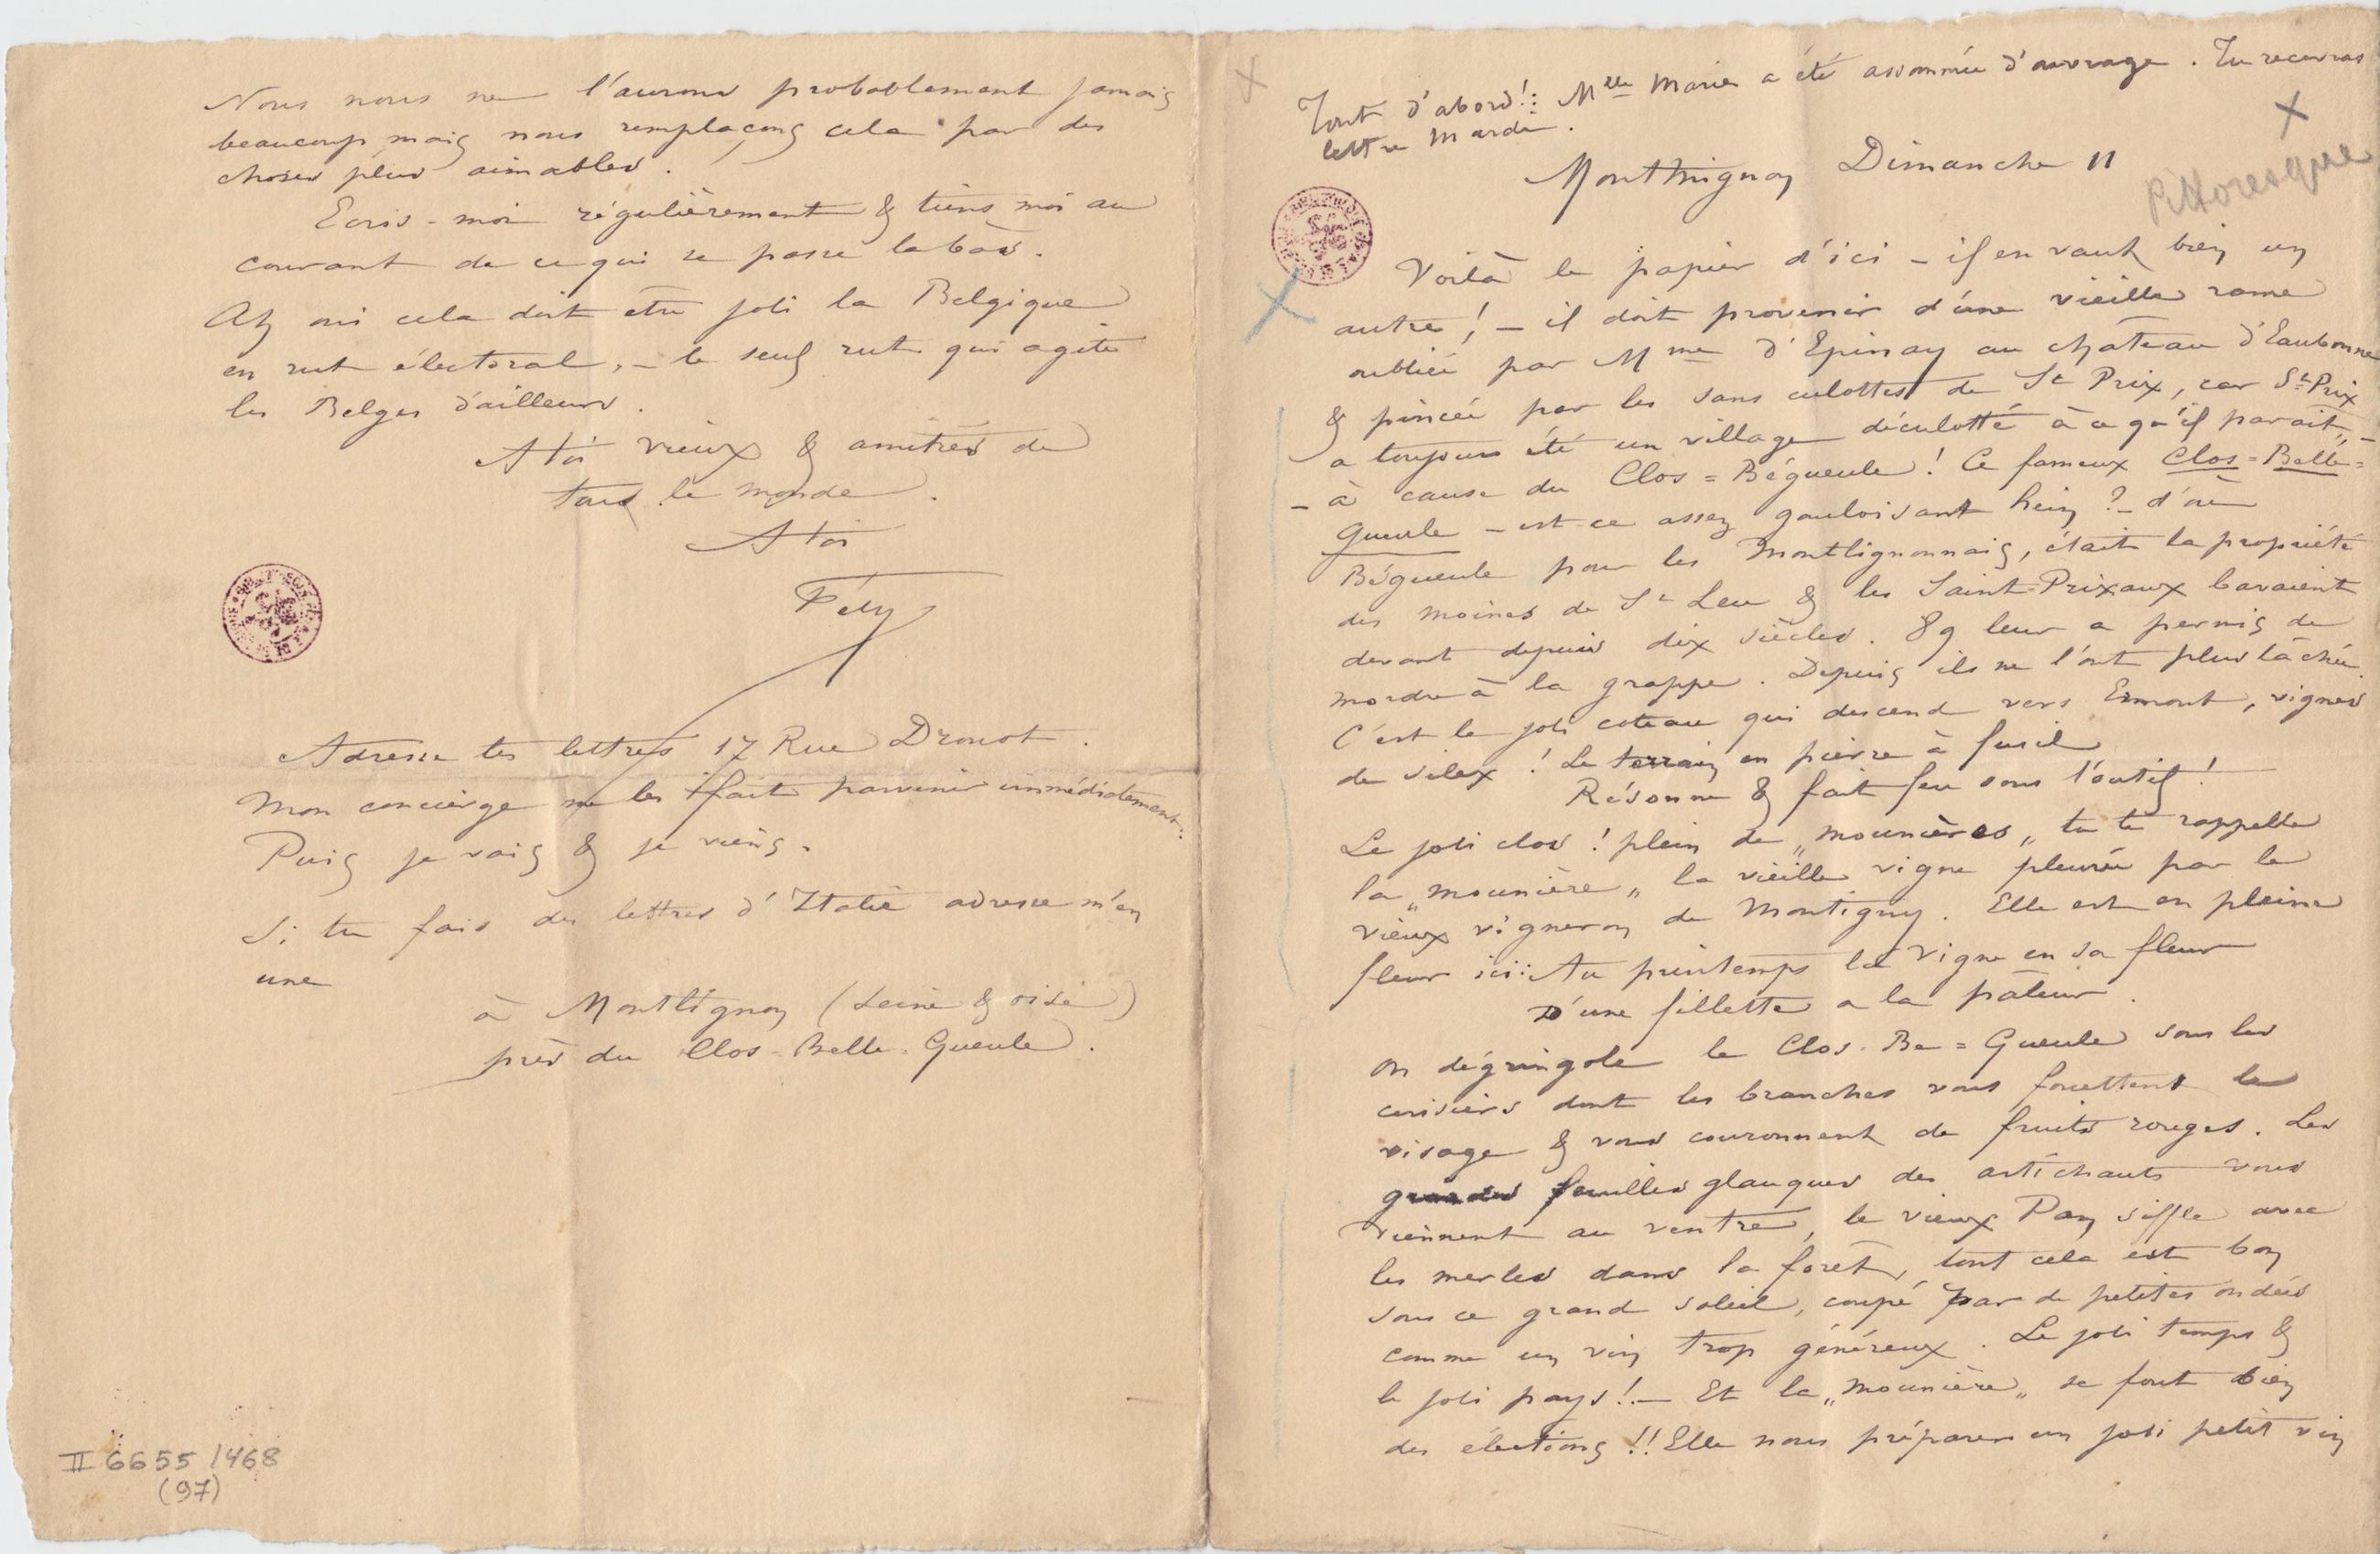 Tout d'abord!: Mlle Marie a été assommée d'ouvrage. Tu recevras
lettre Mardi.
Montlignon Dimanche 11
Pittoresque
Voilà le papier d'ici – il en vaut bien un
autre! – il doit provenir d'une vieille rame
oubliée par Mme d'Epinay au château d'Eaubonne
& pincée par les sans culottes de St Prix, car St Prix
a toujours été un village déculotté à ce qu'il parait, –
– à cause du Clos = Bégueule! Ce fameux Clos = Belle =
Gueule – est ce assez gauloisant hein? – d'où
Bégueule pour les Montlignonnais, était la propriété
des moines de St Leu & les Saint-Prixaux bavaient
devant depuis dix siècles. 89 leur a permis de
mordre à la grappe. Depuis ils ne l'ont plus lâchée.
C'est le joli coteau qui descend vers Ermont, vignes
de silex! Le terrain en pierre à fusil
Résonne & fait feu sous l'outil!
Le joli clos! plein de „mounières„ tu te rappelle
la „mounière„ la vieille vigne pleurée par le
vieux vigneron de Montigny. Elle est en pleine
fleur ici: Au printemps la vigne en sa fleur
D'une fillette a la pâleur.
On dégringole le Clos-Be=Gueule sous les
cerisiers dont les branches vous fouettent le
visage & vous couronnent de fruits rouges. Les
grandes feuilles glauques des artichauts vous
viennent au ventre, le vieux Pan siffle avec
les merles dans la forêt, tout cela est bon
sous ce grand soleil, coupé par de petites ondées
comme un vin trop généreux. Le joli temps &
le joli pays! – Et la „mounière„ se fout bien
des élections!! Elle nous prépare un joli petit vin
Nous nous ne l'aurons probablement jamais
beaucoup mais nous remplaçons cela par des
choses plus aimables!
Ecris-moi régulièrement & tiens moi au
courant de ce qui se passe labas.
Ah oui cela doit être joli la Belgique
en rut électoral, – le seul rut qui agite
les Belges d'ailleurs.
A toi vieux & amitiés de
tout le monde.
A toi
Fély
Adresse tes lettres 17 Rue Drouot.
Mon concierge me les fait parvenir immédiatement.
Puis je vais & je viens.
Si tu fais des lettres d'Italie adresse m'en
une
à Montlignon (Seine & oise)
près du Clos-Belle-Gueule.
II 6655 / 468
(97)